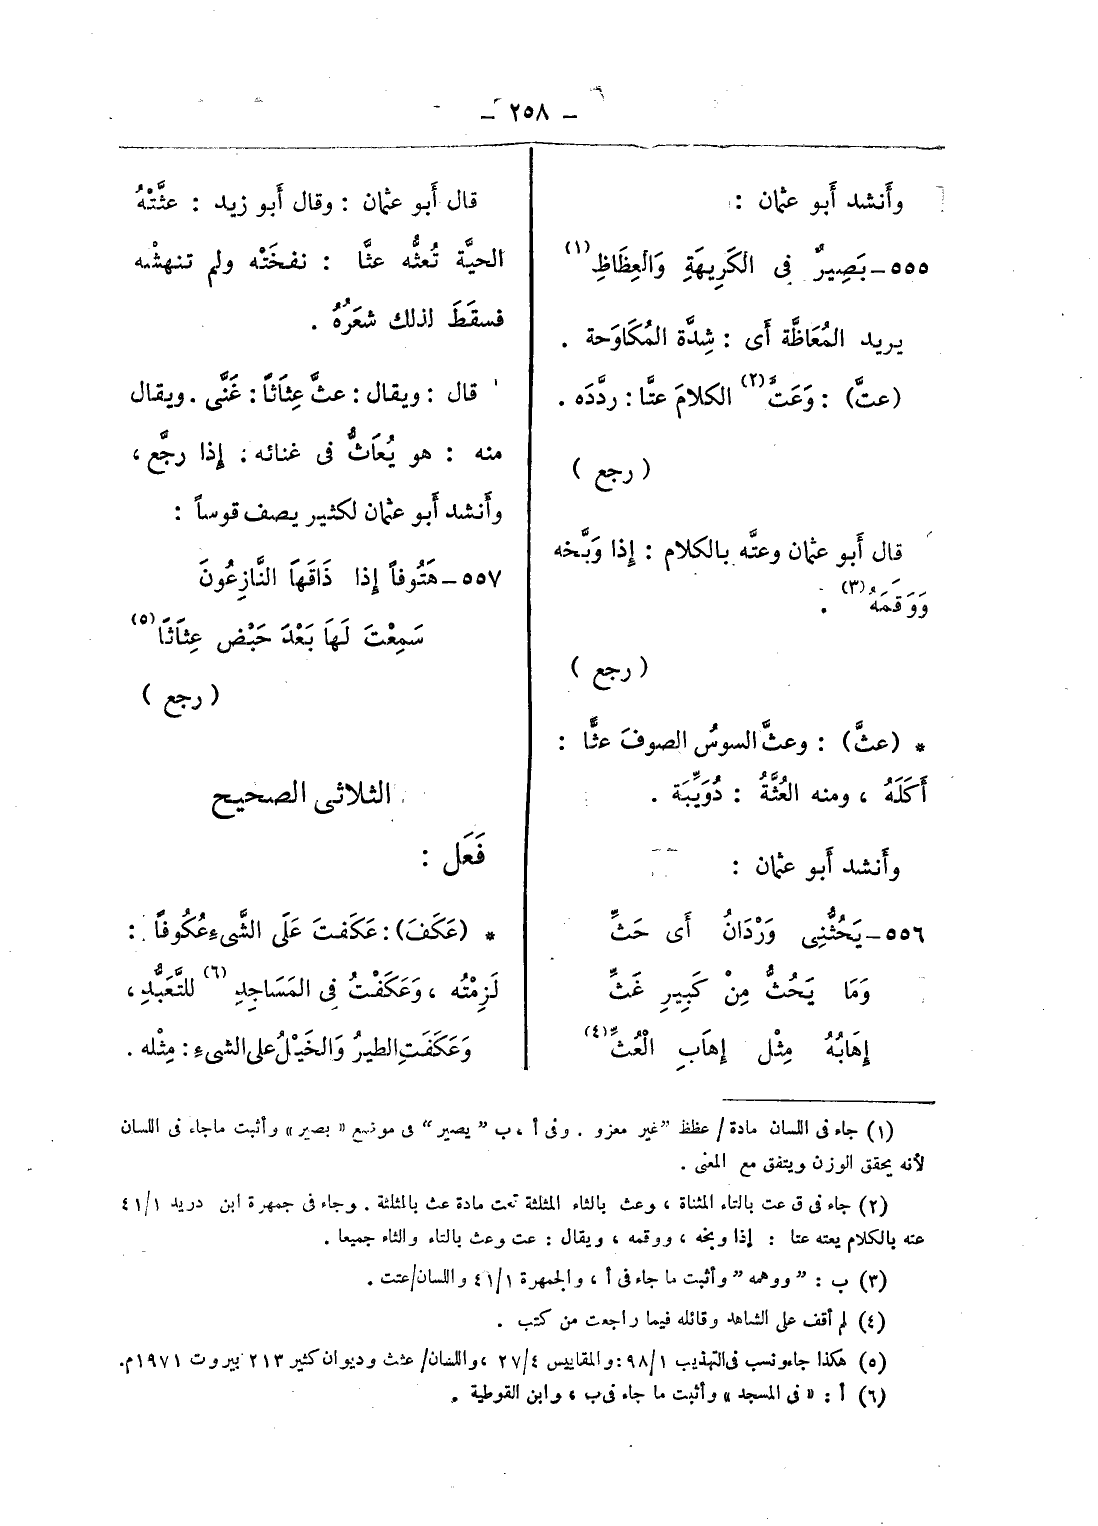 – ٢٥٨ –
وأَنشد أَبو عثمان :
٥٥٥ – بَصِيرٌ فى الكَرِيهَةِ وَالعِظَاظِ (١)
يريد المُعَاظَّة أَى : شِدَّة المُكَاوَحة .
(عتَّ) : وَعَتَّ (٢) الكلامَ عتَّا : ردَّدَه .
( رجع )
قال أَبو عثمان وعتَّه بالكلام : إِذا وَبَّخه
وَوَقَمَهُ (٣) .
( رجع )
* (عثَّ) : وعثَّ السوسُ الصوفَ عثًّا :
أَكَلَهُ ، ومنه العُثَّةُ : دُوَيِّبَة .
وأَنشد أَبو عثمان :
٥٥٦ – يَحُثُّنِى وَرْدَانُ أَى حَثِّ
وَمَا يَحُثُّ مِنْ كَبِيرِ غَثِّ
إِهَابُهُ مِثْل إِهَابِ الْعُثِّ (٤)
قال أَبو عثمان : وقال أَبو زيد : عثَّتْهُ
الحيَّة تُعثُّه عثَّا : نفخَتْه ولم تنهشْه
فسقَطَ لذلك شعَرُهُ .
قال : ويقال : عثَّ عِثَاثاً : غَنَّى . ويقال
منه : هو يُعَاثُّ فى غنائه : إِذا رجَّع ،
وأَنشد أَبو عثمان لكثير يصف قوساً :
٥٥٧ – هَتُوفاً إِذا ذَاقَهَا النَّازِعُونَ
سَمِعْتَ لَهَا بَعْدَ حَبْض عِثَاثَا (٥)
( رجع )
الثلاثى الصحيح
فَعَل :
* (عَكَفَ) : عَكَفتَ عَلَى الشَّىءِ عُكُوفاً :
لَزِمْتُه ، وَعَكَفْتُ فِى المَسَاجِدِ (٦) للتَّعَبُّدِ ،
وَعَكَفَتِ الطيرُ وَالخَيْلُ على الشىءِ : مِثْله .
(١) جاء فى اللسان مادة / عظظ ”غير معزو . وفى أ ، ب ” يصير “ فى موضع « بصير » وأثبت ماجاء فى اللسان
لأنه يحقق الوزن ويتفق مع المعنى .
(٢) جاء فى ق عت بالتاء المثناة ، وعث بالثاء المثلثة تحت مادة عث بالمثلثة . وجاء فى جمهرة ابن دريد ٤١/١
عته بالكلام يعته عتا : إذا وبخه ، ووقمه ، ويقال : عت وعث بالتاء والثاء جميعا .
(٣) ب : ” ووهمه “ وأثبت ما جاء فى أ ، والجمهرة ٤١/١ واللسان/عتت .
(٤) لم أقف على الشاهد وقائله فيما راجعت من كتب .
(٥) هكذا جاء ونسب فى التهذيب ٩٨/١ : والمقاييس ٢٧/٤ ، واللسان/ عثث وديوان كثير ٢١٣ بيروت ١٩٧١م.
(٦) أ : « فى المسجد » وأثبت ما جاء فى ب ، وابن القوطية .